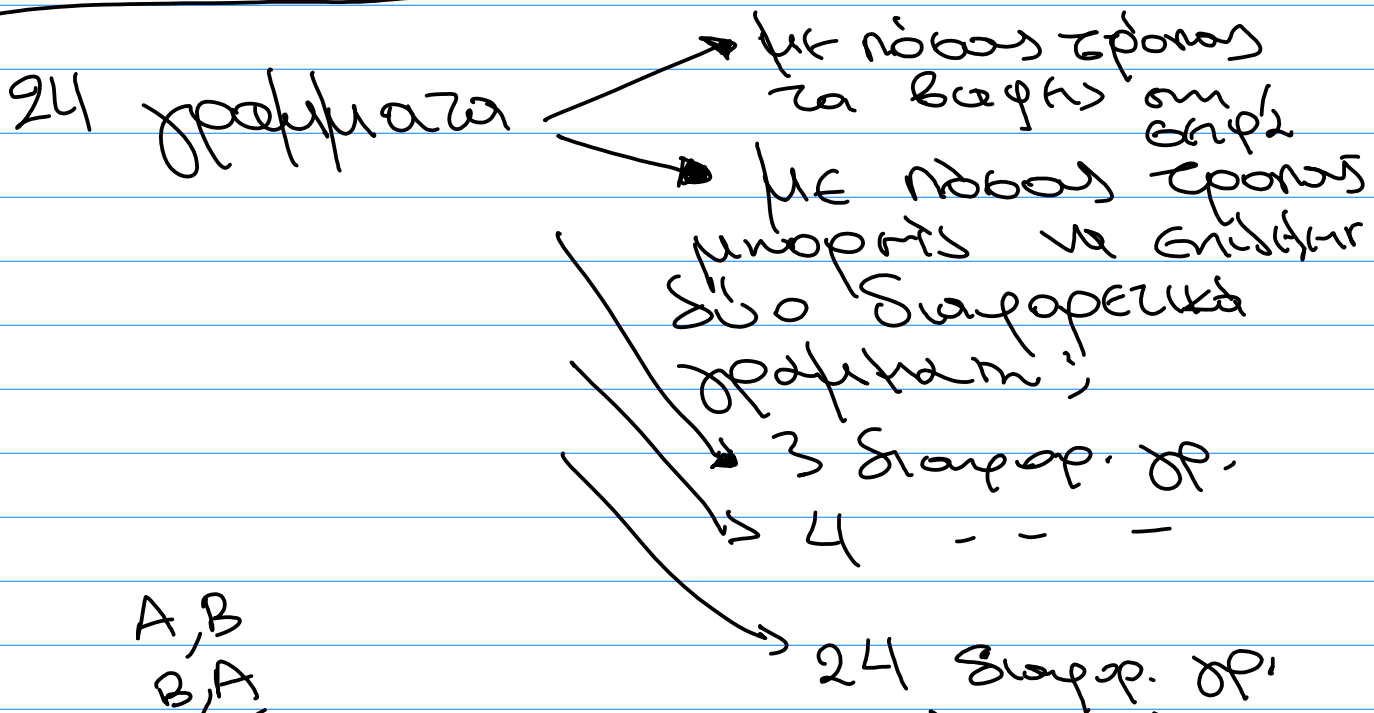 24 γράμματα
με πόσους τρόπους
τα βάφεις στη
σειρά
με πόσους τρόπους
μπορείς να επιλέξεις
δύο διαφορετικά
γράμματα;
3 διαφορ. γρ.
4 - - -
A, B
B, A
24 διαφορ. γρ.